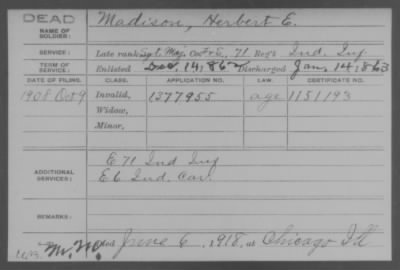 DEAD
NAME OF SOLDIER:
Madison, Herbert E.
SERVICE:
Late rank Sgt. Maj. Co. F & E, 71 Reg't Ind. Inf.
TERM OF SERVICE:
Enlisted Dec. 14, 1862 Discharged Jan. 14, 1863
DATE OF FILING. CLASS. APPLICATION NO. LAW. CERTIFICATE NO.
1908 Oct 9 Invalid, 1377955 age 1151193
Widow,
Minor,
ADDITIONAL SERVICES:
E 71 Ind Inf
E 6 Ind. Cav.
REMARKS:
M.W. Died June 6, 1918, at Chicago Ill